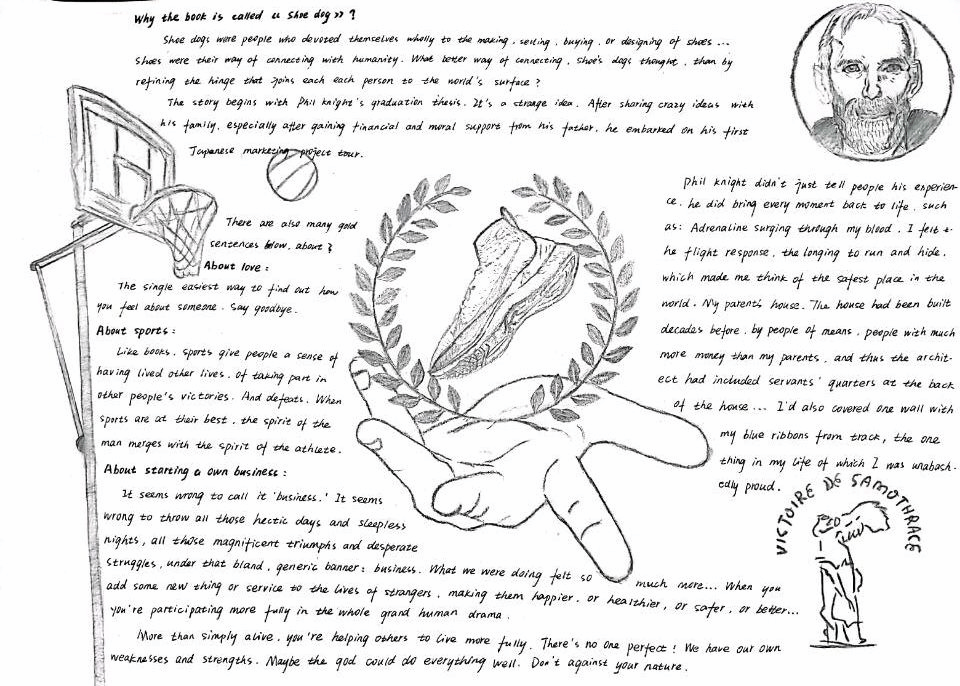 Why the book is called 《 Shoe dog 》 ?
Shoe dogs were people who devoted themselves wholly to the making, selling, buying, or designing of shoes ...
Shoes were their way of connecting with humanity. What better way of connecting, shoe's dogs thought, than by
refining the hinge that joins each each person to the world's surface ?
The story begins with Phil knight's graduation thesis. It's a strange idea. After sharing crazy ideas with
his family, especially after gaining financial and moral support from his father, he embarked on his first
Japanese marketing project tour.
There are also many gold
sentences blow, about ?
About love :
The single easiest way to find out how
you feel about someone. Say goodbye.
About sports :
Like books, sports give people a sense of
having lived other lives, of taking part in
other people's victories. And defeats. When
sports are at their best, the spirit of the
man merges with the spirit of the athlete.
About starting a own business :
It seems wrong to call it 'business.' It seems
wrong to throw all those hectic days and sleepless
nights, all those magnificent triumphs and desperate
struggles, under that bland, generic banner: business. What we were doing felt so much more... When you
add some new thing or service to the lives of strangers, making them happier, or healthier, or safer, or better...
you're participating more fully in the whole grand human drama.
More than simply alive, you're helping others to live more fully. There's no one perfect ! We have our own
weaknesses and strengths. Maybe the god could do everything well. Don't against your nature.
Phil knight didn't just tell people his experien-
ce, he did bring every moment back to life, such
as: Adrenaline surging through my blood, I felt t-
he flight response, the longing to run and hide,
which made me think of the safest place in the
world. My parents house. The house had been built
decades before, by people of means, people with much
more money than my parents, and thus the archit-
ect had included servants' quarters at the back
of the house... I'd also covered one wall with
my blue ribbons from track, the one
thing in my life of which I was unabash-
edly proud.
VICTOIRE DE SAMOTHRACE